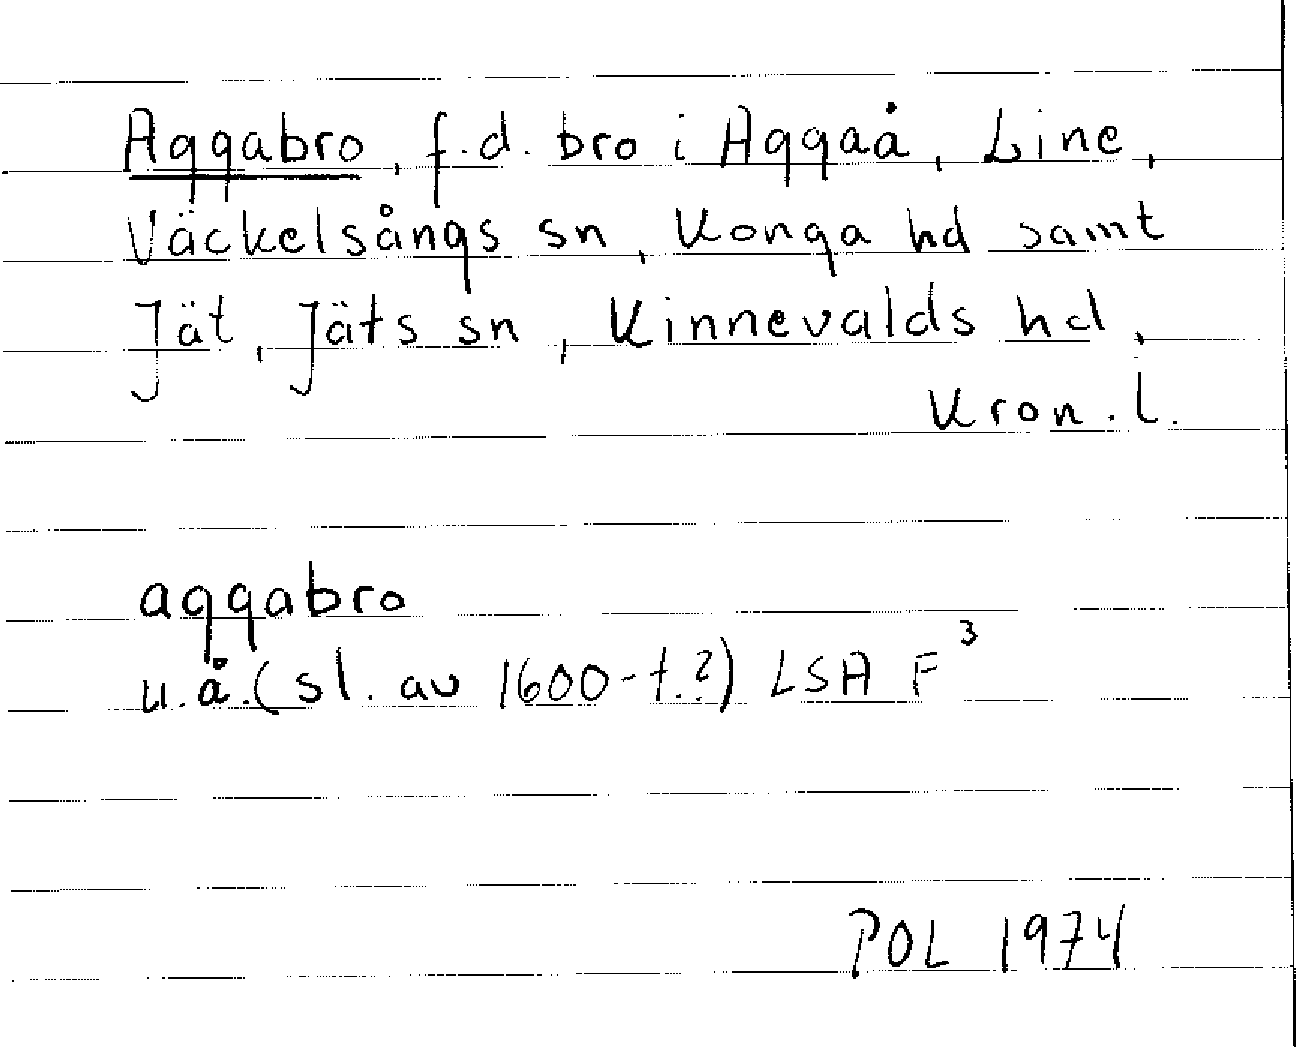 Aggabro, f.d. bro i Aggaå, Line,
Väckelsångs sn, Konga hd samt
Jät, Jäts sn, Kinnevalds hd,
Kron. l.
aggabro
u.å. (sl. av 1600-t.?) LSA F³
POL 1974